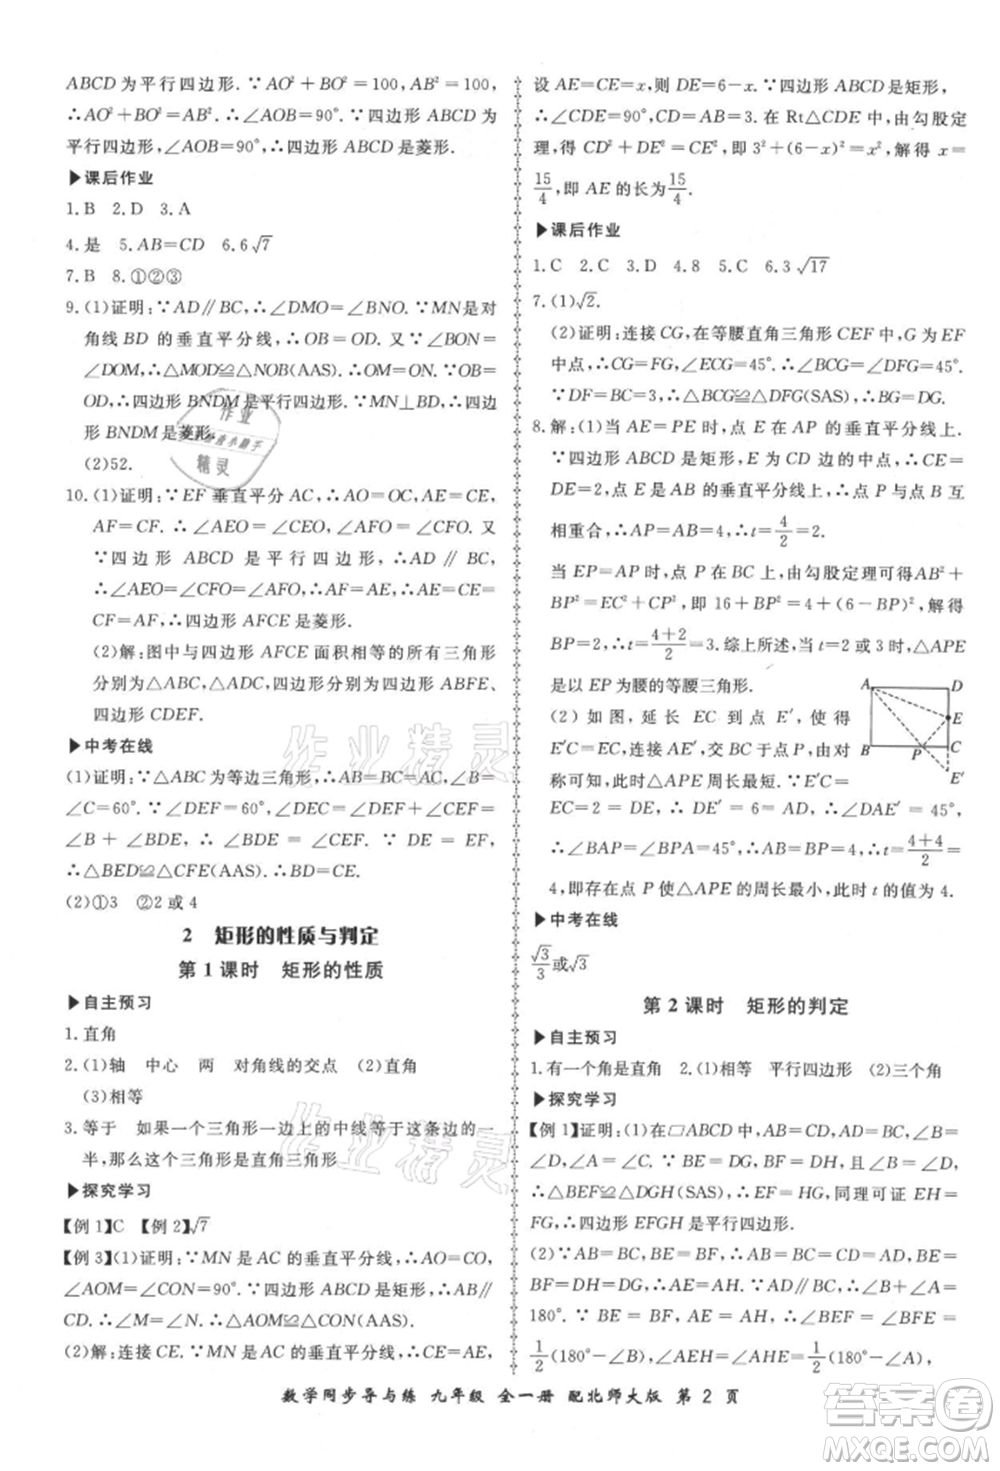 ABCD为平行四边形.∵AO²+BO²=100,AB²=100,
∴AO²+BO²=AB².∴∠AOB=90°.∵四边形ABCD为
平行四边形,∠AOB=90°,∴四边形ABCD是菱形.
▶课后作业
1.B 2.D 3.A
4.是 5.AB=CD 6.6√7
7.B 8.①②③
9.(1)证明:∵AD∥BC,∴∠DMO=∠BNO.∵MN是对
角线BD的垂直平分线,∴OB=OD.∵∠BON=
∠DOM,∴△MOD≌△NOB(AAS).∴OM=ON.∵OB=
OD,∴四边形BNDM是平行四边形.∵MN⊥BD,∴四边
形BNDM是菱形.
(2)52.
10.(1)证明:∵EF垂直平分AC,∴AO=OC,AE=CE,
AF=CF.∴∠AEO=∠CEO,∠AFO=∠CFO.又
∵四边形ABCD是平行四边形,∴AD∥BC,
∴∠AEO=∠CFO.∴∠AEO=∠AFO.∴AF=AE.
∴AE=EC=CF=AF,∴四边形AFCE是菱形.
(2)解:图中与四边形AFCE面积相等的所有三角形
分别为△ABC,△CDA,四边形分别为四边形ABFE,
四边形CDEF.
▶中考在线
(1)证明:∵△ABC为等边三角形,∴AB=AC,∠B=
∠C=60°.∵∠DEF=60°,∴∠DEC=∠DEF+∠CEF=
∠B+∠BDE,∴∠BDE=∠CEF.∵DE=EF,
∴△BED≌△CFE(AAS).∴BE=CF.
(2)①3 ②2或4
2 矩形的性质与判定
第1课时 矩形的性质
▶自主预习
1.直角
2.(1)轴 中心 两 对角线的交点 (2)直角
(3)相等
3.等于 如果一个三角形一边上的中线等于这条边的一
半,那么这个三角形是直角三角形
▶探究学习
【例1】C 【例2】√7
【例3】(1)证明:∵MN是AC的垂直平分线,∴AO=CO,
∠AOM=∠CON=90°.∵四边形ABCD是矩形,∴AB∥
CD.∴∠M=∠N.∴△AOM≌△CON(AAS).∴AM=CN.
(2)解:连接CE.∵MN是AC的垂直平分线,∴CE=AE,
设AE=CE=x,则DE=6-x.∵四边形ABCD是矩形,
∴∠CDE=90°,CD=AB=3.在Rt△CDE中,由勾股定
理,得CD²+DE²=CE²,即3²+(6-x)²=x²,解得x=
15/4,即AE的长为15/4.
▶课后作业
1.C 2.C 3.D 4.8 5.C 6.3√17
7.(1)√2.
(2)证明:连接CG,在等腰直角三角形CEF中,G为EF
中点,∴CG=FG,∠ECG=45°.∴∠BCG=∠DFG=45°.
又∵DF=BC=3,∴△BCG≌△DFG(SAS),∴BG=DG.
8.解:(1)当AE=PE时,点E在AP的垂直平分线上.
∵四边形ABCD是矩形,点E为边CD的中点,∴AE=
BE.∴点E在AB的垂直平分线上,∴点P与点B互
相重合,∴AP=AB=4,∴t=4/2=2.
当EP=AP时,点P在BC上,由勾股定理得AB²+
BP²=EC²+CP²,即16+BP²=4+(6-BP)²,解得
BP=2,∴t=(4+2)/2=3.综上所述,当t=2或3时,△APE
是以EP为腰的等腰三角形.
(2)如图,延长EC到点E′,使E′C=
EC,连接AE′,交BC于点P,由对
称可知,此时△APE周长最短.∵E′C=
EC=2=DE,∴DE′=6=DA,∴∠DAE′=45°,
∴∠BAP=∠BPA=45°,∴AB=BP=4,∴t=(4+4)/2=
4,即存在点P使△APE的周长最小,此时t的值为4.
A D
E
B P C
E′
▶中考在线
√3/3或√3
第2课时 矩形的判定
▶自主预习
1.有一个角是直角 2.(1)相等 平行四边形 (2)三个角
▶探究学习
【例1】证明:(1)在▱ABCD中,∠B=∠D,AB=CD,
∠A=∠C,AD=BC.∵AE=CG,∴BE=DG.∵BF=DH,
∴△BEF≌△DGH(SAS),∴EF=HG,同理可证EH=
FG,∴四边形EFGH是平行四边形.
(2)∵AB=BC,∴AB=AD,∵BE=BF,∴BE=
BF=DH=DG.∴AE=AH,∵AD∥BC,∴∠B+∠A=
180°.∵BE=BF,AE=AH,∴∠BEF=∠BFE=
1/2(180°-∠B),∠AEH=∠AHE=1/2(180°-∠A),
数学同步导与练 九年级 全一册 配北师大版 第2页
作业精灵
作业精灵
作业
精灵
答案圈
MXQE.COM